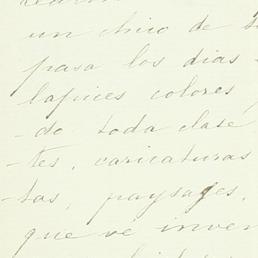 un chico de
pasa los dias
lapices colores
-do toda clase
-tes, caricaturas
-tas, paysages,
que ve inven